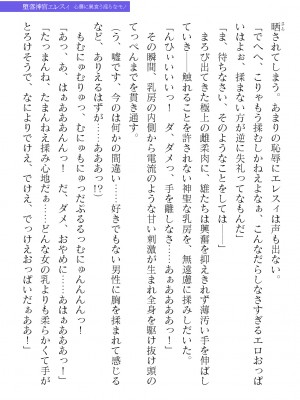 堕落神官エレスィ
晒されてしまう。あまりの恥辱にエレスィは声も出ない。
「でへへ、こりゃもう揉むしかねえよなぁ。こんなだらしなさすぎるエロおっぱいはよぉ。揉まない方が逆に失礼ってなもんだ」
「ま、待ちなさい、そのようなことをしては――」
まろび出てきた極上の雌柔肉に、雄たちは興奮を抑えきれず薄汚い手を伸ばしていき、触れることを許されない神聖な乳房を、無遠慮に揉みしだいた。
「んひぃぃいいっ！ ダ、ダメっ、手を離しなさ……あぁああああっ！」
その瞬間、乳房の内側から電流のような甘い刺激が生まれ全身を駆け抜け頭のてっぺんまでを貫き通す。
（う、嘘です、今のは何かの間違い……好きでもない男性に胸を揉まれて感じるなど、ありえるはずが……あああっ！？）
もむにゅむりゅっ、もにゅっだぷるるっむにゅんんんんっ！
「あっ、あ、はぁああああんっ！ だ、ダメ、おやめに……はぁぁあああっ！」
「たっまんね、たまんねえ揉み心地だぁ……どんな女の乳よりも柔らかくて手が溶けちまいそうで、なによりでけえ、でけえ、でっけえおっぱいだぁああ！」